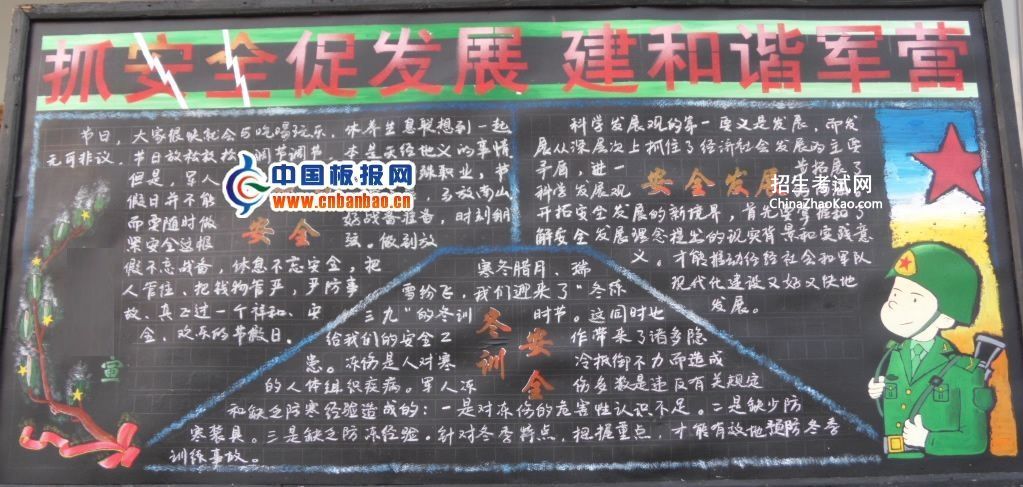 抓安全促发展 建和谐军营
节日，大家很快就会与吃喝玩乐、休养生息联想到一起
无可非议，节日放松放松 调节调节 本是天经地义的事情
但是，军人 殊职业，节
假日并不能 马放南山
而要随时做 好战备准备，时刻绷
紧安全这根 弦。做到放
假不忘战备，休息不忘安全，把
人管住、把钱物管严，严防事
故、真正过一个祥和、安
全、欢乐的节假日。
安全
中国板报网
www.cnbanbao.cn
科学发展观的第一要义是发展，而发
展从深层次上抓住了经济社会发展的主要
矛盾，进一 步拓展了
科学发展观
开拓安全发展的新境界，首先要掌握和了
解安全发展理念提出的现实背景和实践意
义。才能推动经济社会和军队
现代化建设又好又快地
发展。
安全发展
招生考试网
ChinaZhaoKao.com
寒冬腊月、瑞
雪纷飞，我们迎来了“冬练
三九”的冬训 时节。这同时也
给我们的安全工 作带来了诸多隐
患。冻伤是人对寒 冷抵御不力而造成
的人体组织疾病。军人冻 伤多数是违反有关规定
和缺乏防寒经验造成的：一是对冻伤的危害性认识不足。二是缺少防
寒装具。三是缺乏防冻经验。针对冬季特点，把握重点，才能有效地预防冬季
训练事故。
冬训
安全
宣